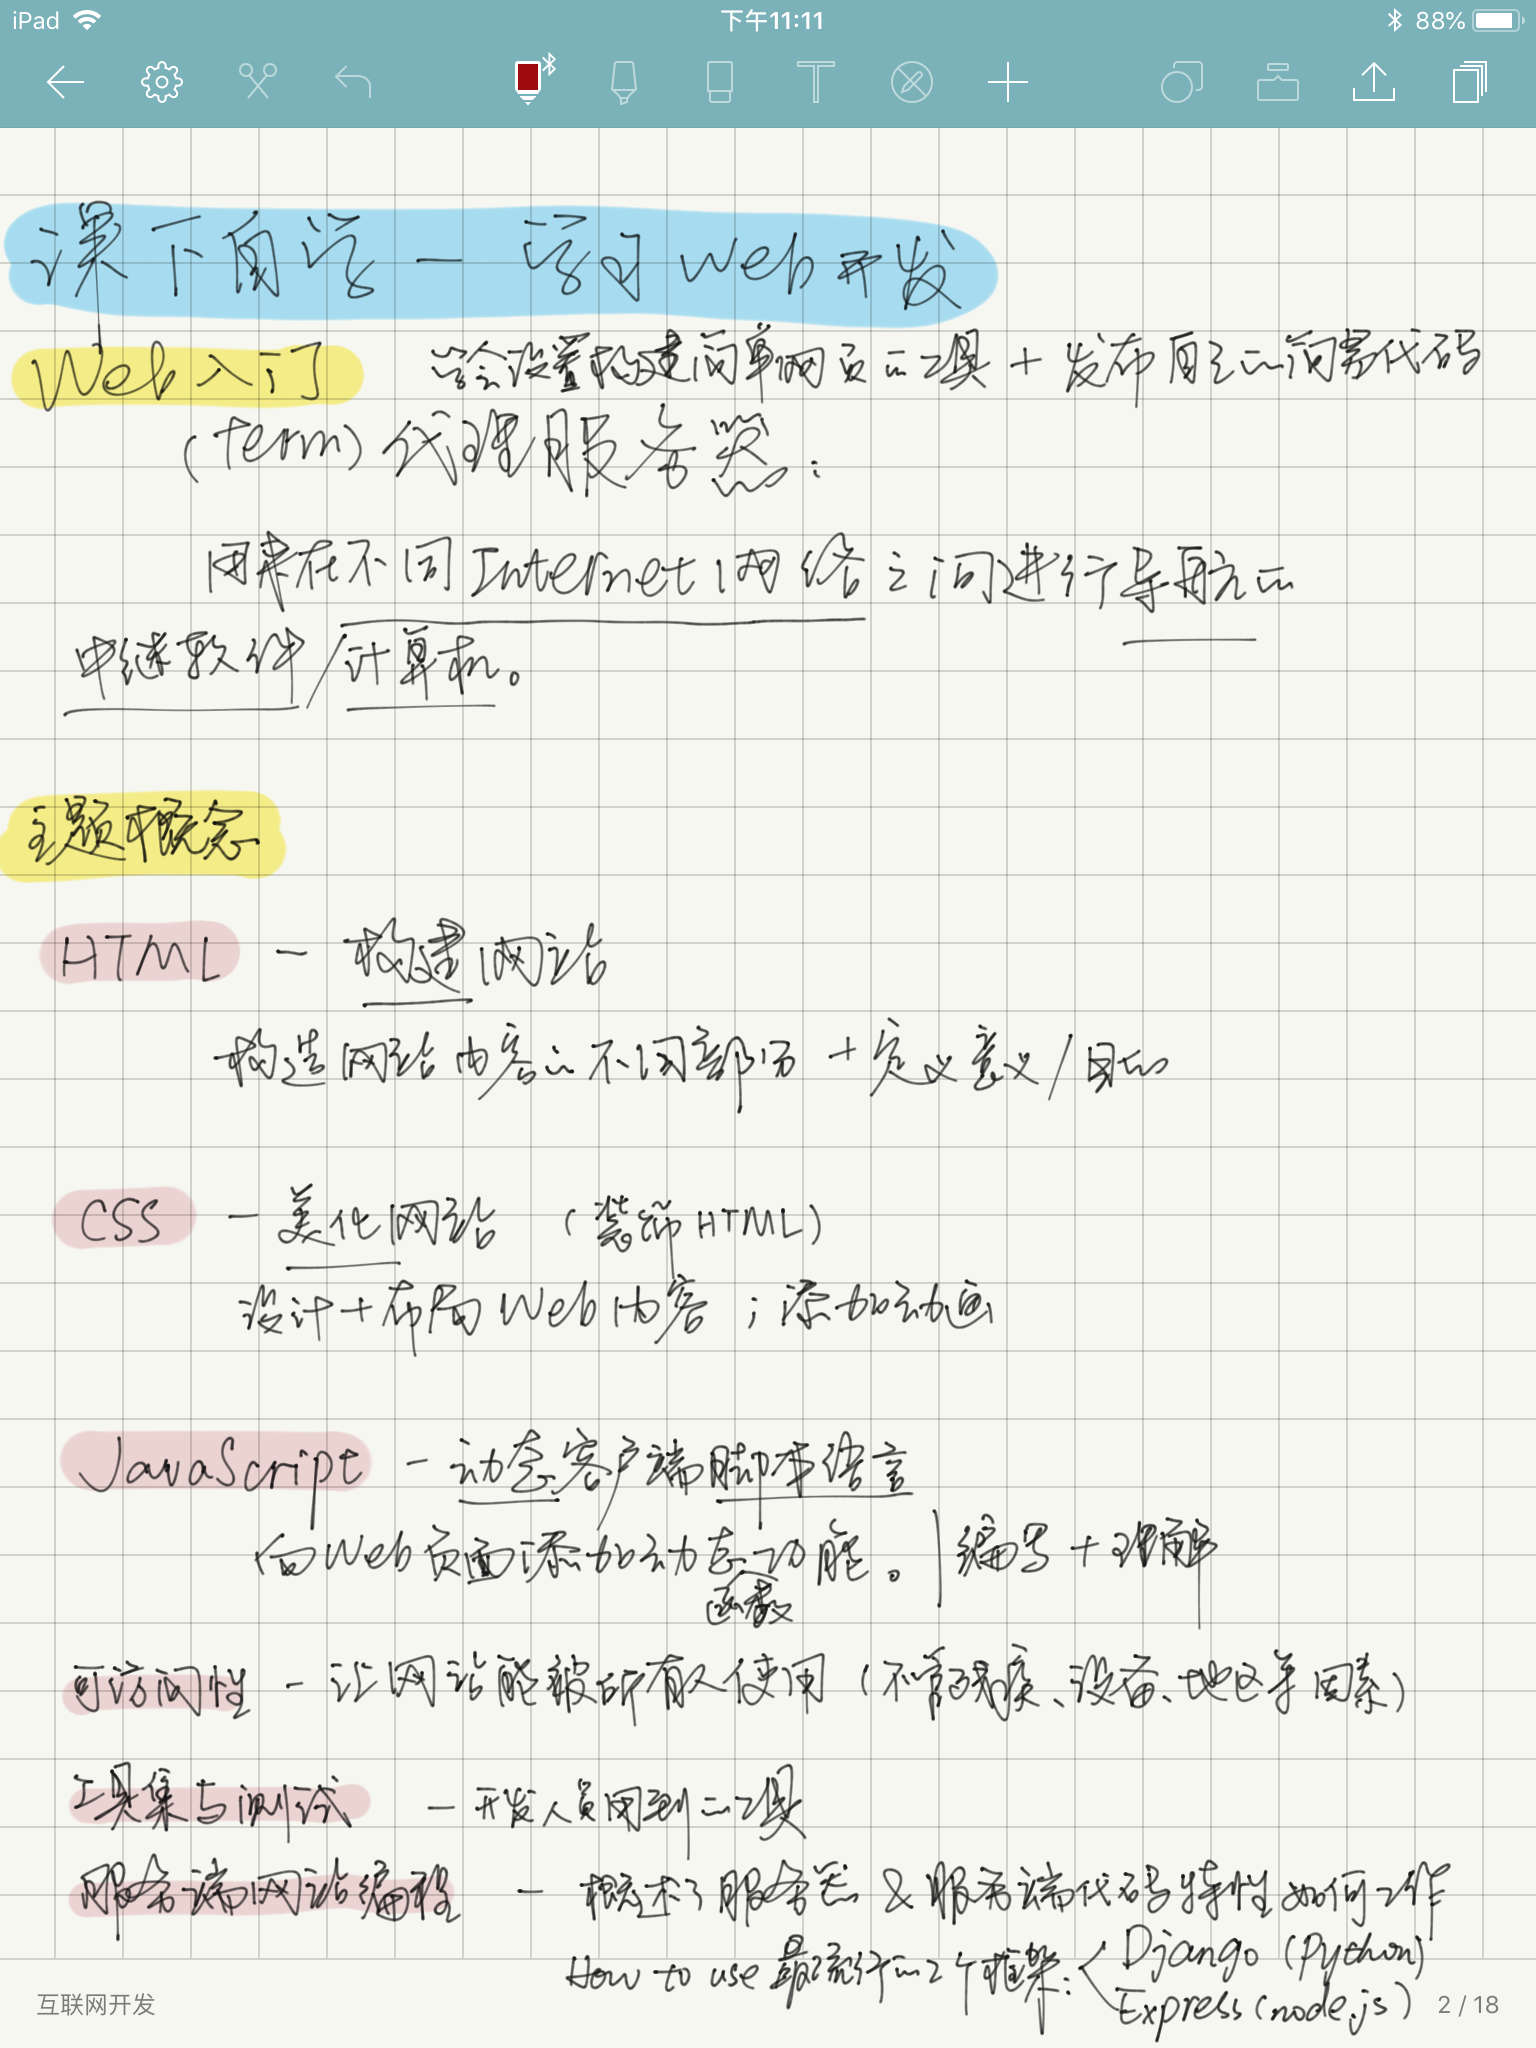 iPad 下午11:11 88%
课下自学 — 学习 Web 开发
Web 入门 学会设置构建简单网页的工具 + 发布自己的简易代码
(term) 代理服务器:
用来在不同Internet网络之间进行导航的
中继软件/计算机。
主题概念
HTML — 构建网站
构造网站内容的不同部分 + 定义意义/目的
CSS — 美化网站 (装饰HTML)
设计+布局Web内容;添加动画
JavaScript — 动态客户端脚本语言
向Web页面添加动态功能。|编写+理解
函数
可访问性 — 让网站能被所有人使用(不管残疾、设备、地区等因素)
工具集与测试 — 开发人员用到的工具
服务端网站编程 — 概述了服务器 & 服务端代码特性如何工作
How to use 最流行的2个框架: Django (Python)
Express (node.js)
互联网开发 2 / 18